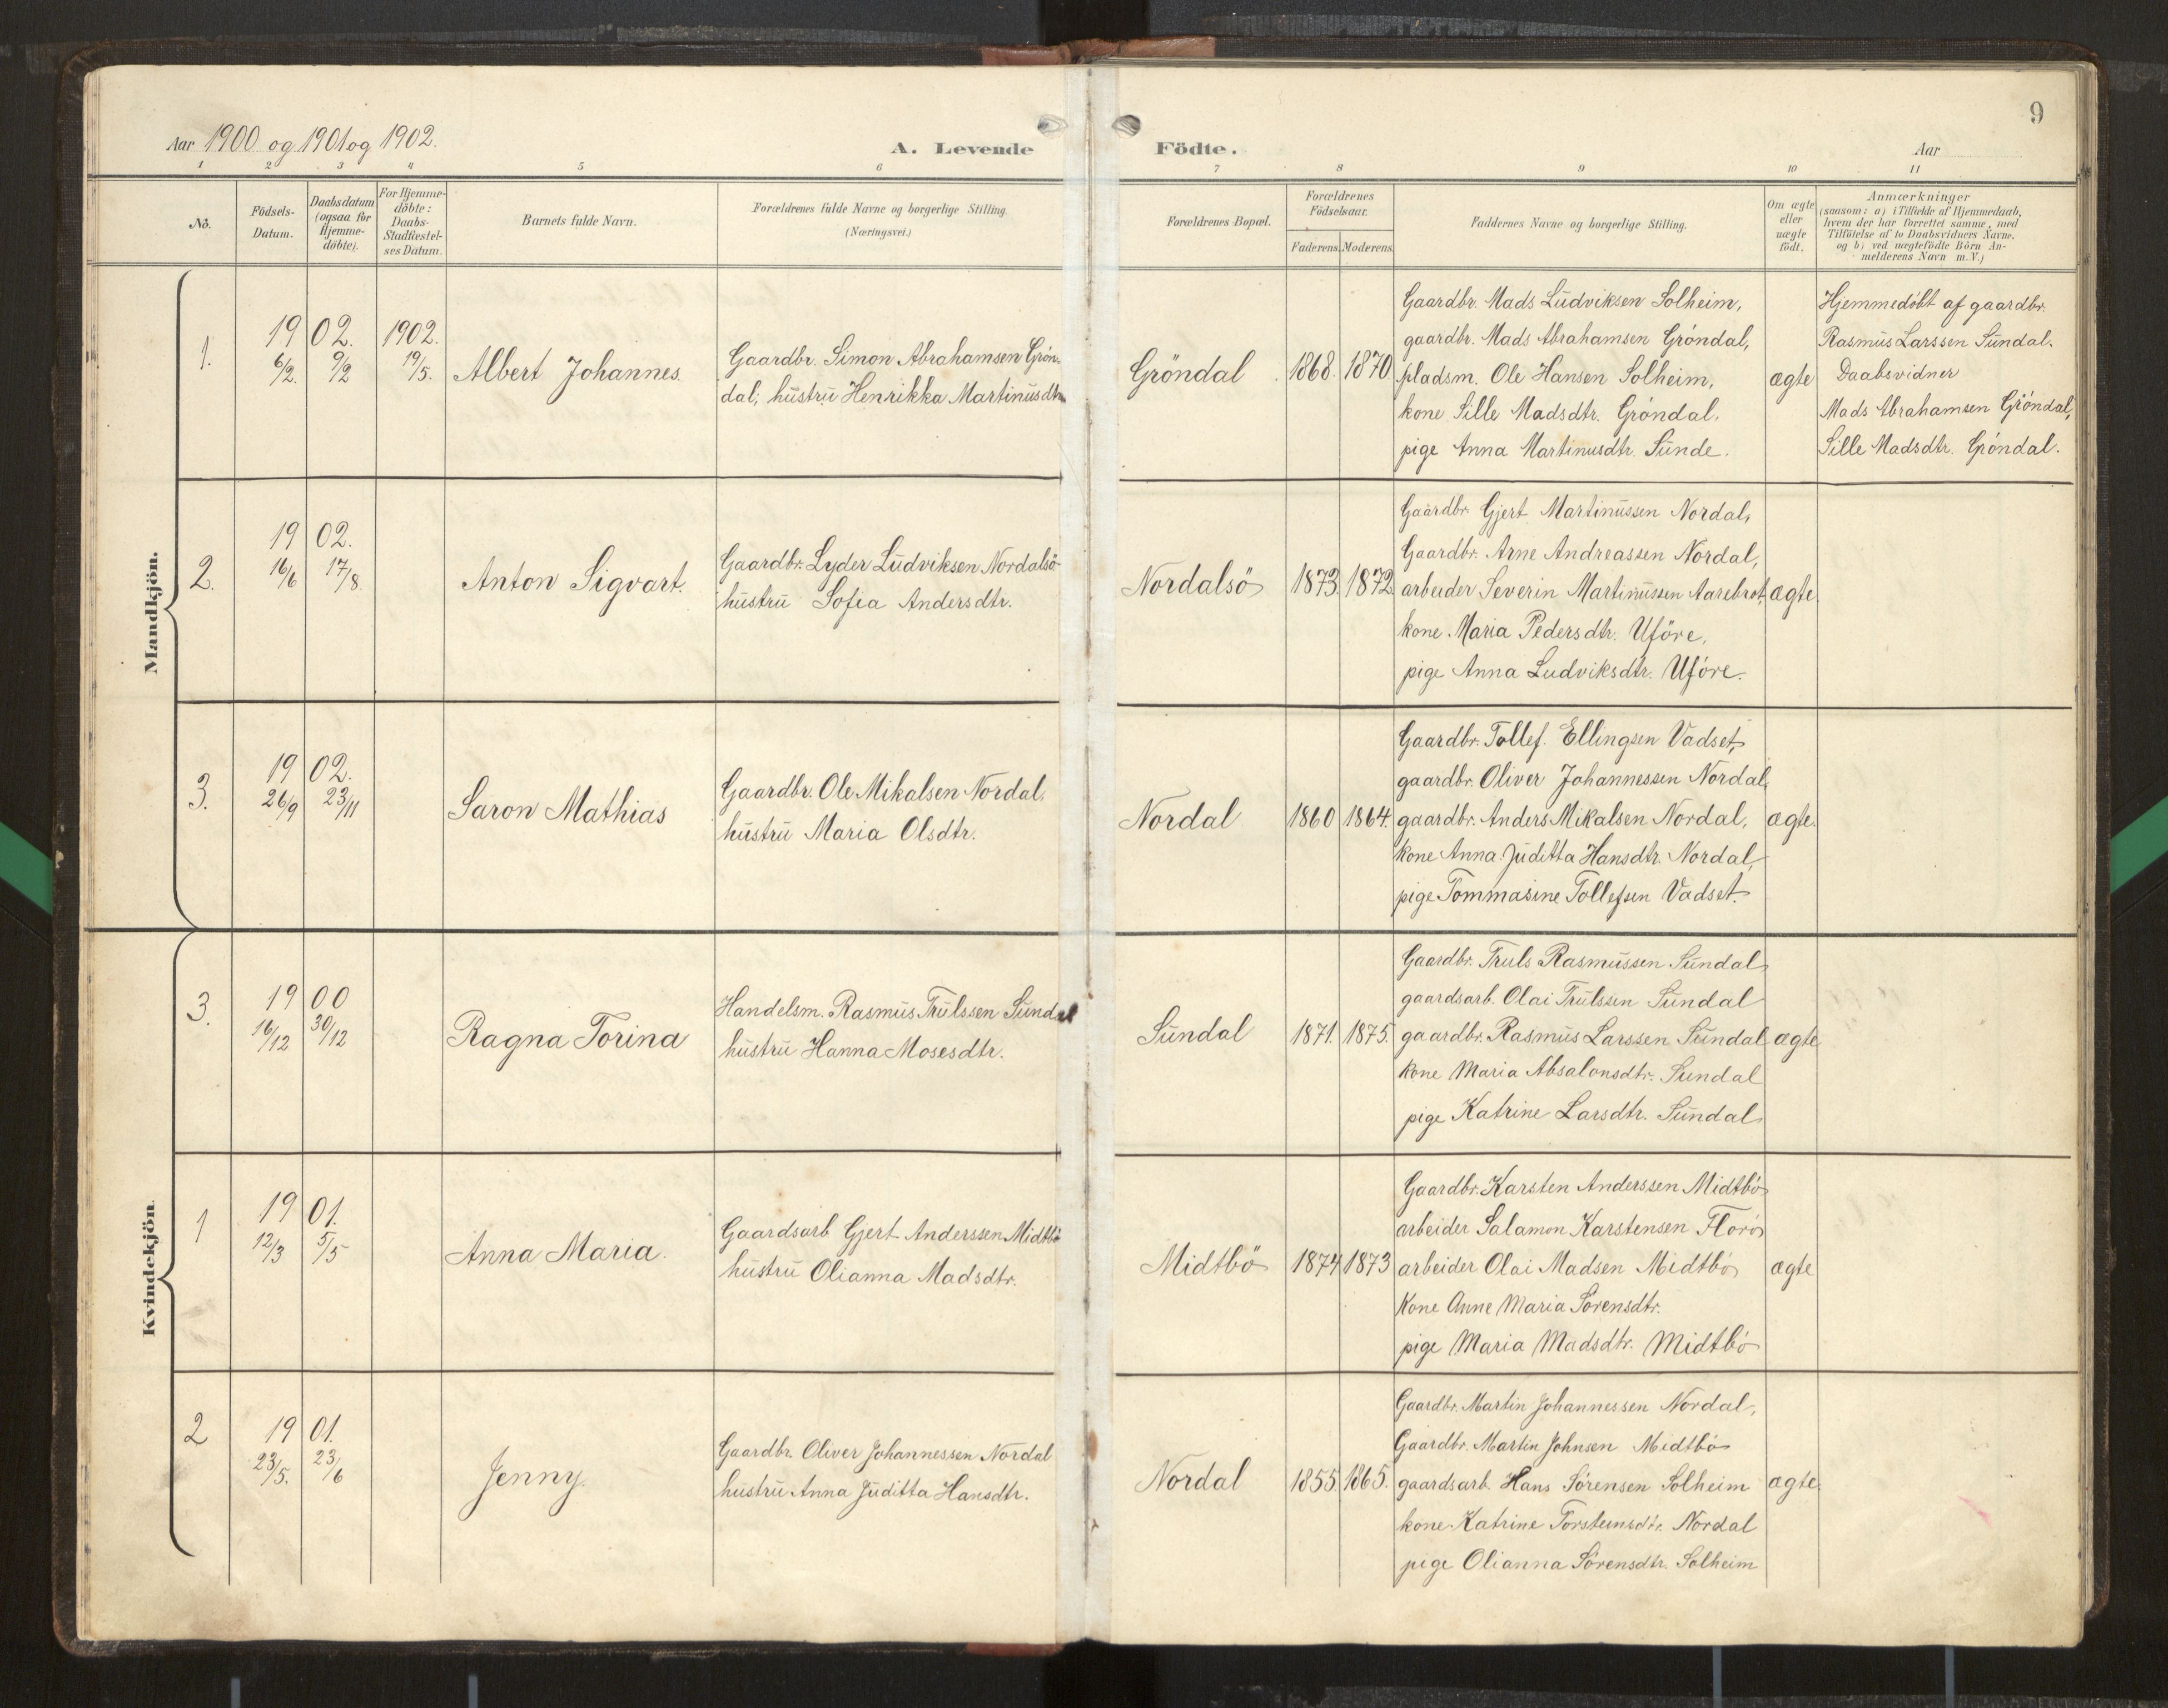 9
Aar 1900 og 1901 og 1902.
A. Levende Födte.
Aar
1 2 3 4 5 6 7 8 9 10 11
No.
Födsels-
Datum.
Daabsdatum
(ogsaa for
Hjemme-
döbte).
For Hjemme-
döbte:
Daabs-
Stadfæstel-
ses Datum.
Barnets fulde Navn.
Forældrenes fulde Navne og borgerlige Stilling.
(Næringsvei.)
Forældrenes Bopæl.
Forældrenes
Födselsaar.
Faderens.
Moderens.
Faddernes Navne og borgerlige Stilling.
Om ægte
eller
uægte
födt.
Anmærkninger
(saasom: a) i Tilfælde af Hjemmedaab,
hvem der har forrettet samme, med
Tilföielse af to Daabsvidners Navne,
og b) ved uægtefödte Börn An-
melderens Navn m.V.)
Mandkjön.
1.
1902.
6/2.
9/2
1902.
19/5.
Albert Johannes.
Gaardbr. Simon Abrahamsen Grön-
dal; hustru Henrikka Martinusdtr.
Gröndal
1868.
1870
Gaardbr. Mads Ludviksen Solheim,
gaardbr. Mads Abrahamsen Gröndal,
pladsm. Ole Hansen Solheim,
kone Sille Madsdtr. Gröndal.
pige Anna Martinusdtr. Sunde.
ægte
Hjemmedöbt af gaardbr.
Rasmus Larssen Sundal.
Daabsvidner
Mads Abrahamsen Gröndal,
Sille Madsdtr. Gröndal.
2.
1902.
16/6
17/8.
Anton Sigvart.
Gaardbr. Lyder Ludviksen Nordalsö
hustru Sofia Andersdtr.
Nordalsö
1873.
1872.
Gaardbr. Gjert Martinussen Nordal,
Gaardbr. Arne Andreassen Nordal,
arbeider Severin Martinussen Aarebrot,
kone Maria Pedersdtr. Uföre,
pige Anna Ludviksdtr. Uföre.
ægte.
3.
1902.
26/9
23/11
Saron Mathias
Gaardbr. Ole Mikalsen Nordal,
hustru Maria Olsdtr.
Nordal
1860
1864.
Gaardbr. Tollef. Ellingsen Vadset,
gaardbr. Oliver Johannessen Nordal,
gaardbr. Anders Mikalsen Nordal,
kone Anna Juditta Hansdtr. Nordal,
pige Tommasine Tollefsen Vadset.
ægte.
Kvindekjön.
3.
1900
16/12
30/12
Ragna Torina
Handelsm. Rasmus Trulssen Sundal
hustru Hanna Mosesdtr.
Sundal
1871.
1875.
Gaardbr. Truls Rasmussen Sundal
gaardsarb. Olai Trulssen Sundal
gaardbr. Rasmus Larssen Sundal
kone Maria Absalonsdtr. Sundal
pige Katrine Larsdtr. Sundal
ægte
1
1901.
12/3
5/5
Anna Maria.
Gaardsarb Gjert Anderssen Midtbö
hustru Olianna Madsdtr.
Midtbö
1874
1873
Gaardbr. Karsten Anderssen Midtbö
arbeider Salamon Karstensen Florö
arbeider Olai Madsen Midtbö
Kone Anne Maria Sörensdtr.
pige Maria Madsdtr. Midtbö
ægte
2
1901.
23/5.
23/6
Jenny.
Gaardbr. Oliver Johannessen Nordal
hustru Anna Juditta Hansdtr.
Nordal
1855
1865.
Gaardbr. Martin Johannessen Nordal,
Gaardbr. Martin Johnsen Midtbö
gaardsarb. Hans Sörensen Solheim
kone Katrine Torsteinsdtr. Nordal
pige Olianna Sörensdtr. Solheim
ægte.